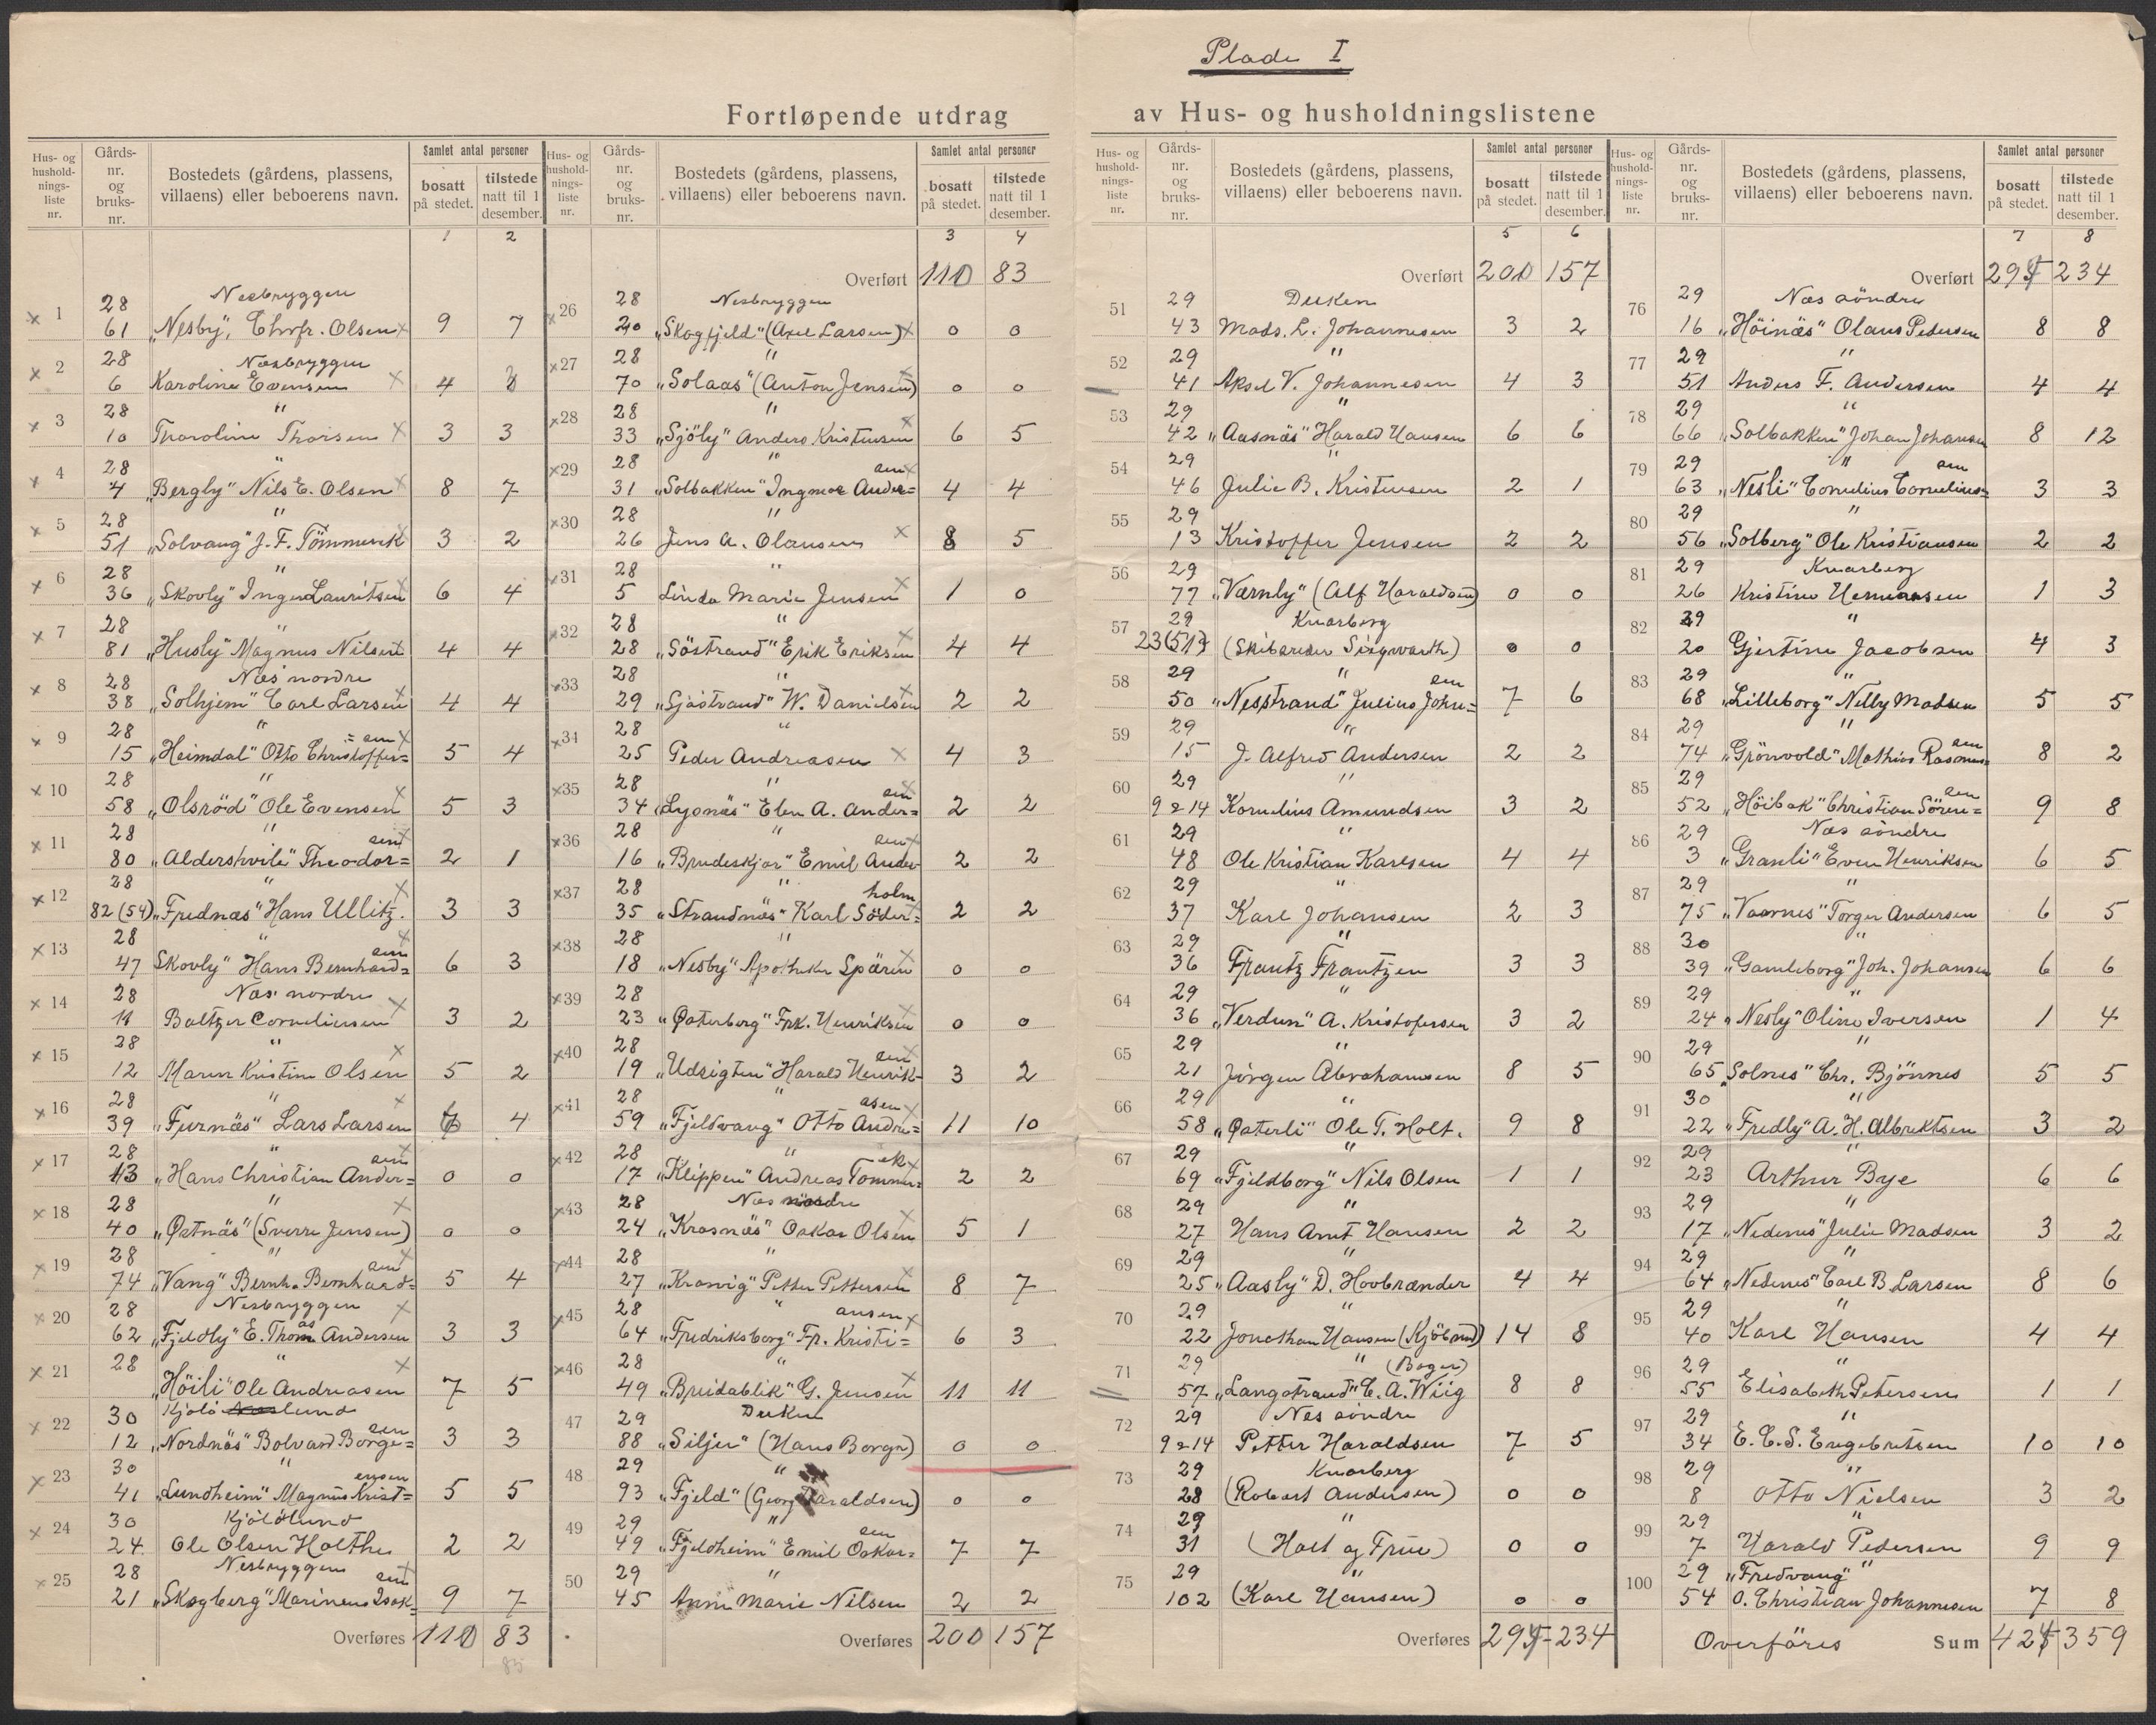 Plade I
Fortløpende utdrag av Hus- og husholdningslistene
Hus- og hushold-nings-liste nr. Gårds-nr. og bruks-nr. Bostedets (gårdens, plassens, villaens) eller beboerens navn. Samlet antal personer bosatt på stedet. tilstede natt til 1 desember.
1 2
1 28 Nesbryggen
61 „Nesby", Chrfr. Olsen 9 7
2 28 Næsbryggen
6 Karoline Evensen 4
3 28 "
10 Thoroline Thorsen 3 3
4 28 "
4 „Bergly" Nils E. Olsen 8 7
5 28 "
51 „Solvang" J. F. Tömmerek 3 2
6 28 "
36 „Skovly" Inger Lauritsen 6 4
7 28 "
81 „Husly" Magnus Nilsen 4 4
8 28 Næs nordre
38 „Solhjem" Carl Larsen 4 4
9 28 "
15 „Heimdal" Otto Christoffer=sen 5 4
10 28 "
58 „Olsröd" Ole Evensen 5 3
11 28 "
80 „Aldershvile" Theodor=sen 2 1
12 28 "
82 (54) „Frednæs" Hans Ullitz. 3 3
13 28 "
47 Skovly" Hans Bernhard=sen 6 3
14 28 Næs nordre
11 Baltzer Corneliusen 3 2
15 28 "
12 Maren Kristine Olsen 5 2
16 28 "
39 „Furnäs" Lars Larsen 4
17 28 "
13 „Hans Christian Ander=sen 0 0
18 28 "
40 „Østnäs" (Sverre Jensen) 0 0
19 28 "
74 „Vang" Bernh. Bernhard=sen 5 4
20 28 Nesbryggen
62 „Fjeldly" E. Thomas Andersen 3 3
21 28 "
„Höili" Ole Andreasen 7 5
22 30 Kjölölund
12 „Nordnäs" Bolvard Borge=sen 3 3
23 30 "
41 „Lundheim" Magnus Krist=ensen 5 5
24 30 Kjölölund
24 Ole Olsen Holthe 2 2
25 28 Nesbryggen
21 „Skogberg" Marinius Isak=sen 9 7
Overføres 110 83
85
Hus- og hushold-nings-liste nr. Gårds-nr. og bruks-nr. Bostedets (gårdens, plassens, villaens) eller beboerens navn. Samlet antal personer bosatt på stedet. tilstede natt til 1 desember.
3 4
Overført 110 83
26 28 Nesbryggen
20 „Skogfjeld" (Axel Larsen) 0 0
27 28 "
70 „Solaas" (Anton Jensen) 0 0
28 28 "
33 „Sjöly" Anders Kristensen 6 5
29 28 "
31 „Solbakken" Ingmar Ander=sen 4 4
30 28 "
26 Jens A. Olausen 8 5
31 28 "
5 Linda Marie Jensen 1 0
32 28 "
28 „Söstrand" Erik Eriksen 4 4
33 28 "
29 „Sjöstrand" W. Danielsen 2 2
34 28 "
25 Peder Andreasen 4 3
35 28 "
34 „Lysnäs" Elen A. Ander=sen 2 2
36 28 "
16 „Brudeskjær" Emil Ander=sen 2 2
37 28 "
35 „Strandnäs" Karl Söder=holm 2 2
38 28 "
18 „Nesby" Apotheker Spären 0 0
39 28 "
23 „Østerberg" Frk. Henriksen 0 0
40 28 "
19 „Udsigten" Harald Henrik=sen 3 2
41 28 "
59 „Fjeldvang" Otto Andre=asen 11 10
42 28 "
17 „Klippen" Andreas Tömmer=ek 2 2
43 28 Næs nordre
24 „Krosnäs" Oskar Olsen 5 1
44 28 "
27 „Krosvig" Petter Pettersen 8 7
45 28 "
64 „Fredriksborg" Fr. Kristi=ansen 6 3
46 28 "
49 „Breidablik" G. Jensen 11 11
47 29 Duken
88 „Siljer" (Hans Borge) 0 0
48 29 "
93 „Fjeld" (Georg Haraldsen) 0 0
49 29 "
49 „Fjeldheim" Emil Oskar=sen 7 7
50 29 "
45 Anne Marie Nilsen 2 2
Overføres 200 157
Hus- og hushold-nings-liste nr. Gårds-nr. og bruks-nr. Bostedets (gårdens, plassens, villaens) eller beboerens navn. Samlet antal personer bosatt på stedet. tilstede natt til 1 desember.
5 6
Overført 200 157
51 29 Duken
43 Mads. L. Johannesen 3 2
52 29 "
41 Aksel V. Johannesen 4 3
53 29 "
42 „Aasnäs" Harald Hansen 6 6
54 29 "
46 Julie B. Kristensen 2 1
55 29 "
13 Kristoffer Jensen 2 2
56 29 "
77 „Værnly" (Alf Haraldsen) 0 0
57 29 Knarberg
23 (51) (Skibsreder Sigwarth) 0 0
58 29 "
50 „Nesstrand" Julius John=sen 7 6
59 29 "
15 J. Alfred Andersen 2 2
60 29 "
9 & 14 Kornelius Amundsen 3 2
61 29 "
48 Ole Kristian Karlsen 4 4
62 29 "
37 Karl Johansen 2 3
63 29 "
36 Frantz Frantzen 3 3
64 29 "
36 „Verdun" A. Kristofersen 3 2
65 29 "
21 Jörgen Abrahamsen 8 5
66 29 "
58 „Østerli" Ole T. Holt. 9 8
67 29 "
69 „Fjeldborg" Nils Olsen 1 1
68 29 "
27 Hans Arnt Hansen 2 2
69 29 "
25 „Aasly" D. Hovbrænder 4 4
70 29 "
22 Jonathan Hansen (Kjöbmd) 14 8
71 29 " (Bager)
57 „Langstrand" C. A. Wiig 8 8
72 29 Nes söndre
9 & 14 Petter Haraldsen 7 5
73 29 Knarberg
28 (Robert Andersen) 0 0
74 29 "
31 (Holt og Frue) 0 0
75 29 "
102 (Karl Hansen) 0 0
Overføres 295 234
Hus- og hushold-nings-liste nr. Gårds-nr. og bruks-nr. Bostedets (gårdens, plassens, villaens) eller beboerens navn. Samlet antal personer bosatt på stedet. tilstede natt til 1 desember.
7 8
Overført 295 234
76 29 Næs söndre
16 „Höinäs" Olaus Pedersen 8 8
77 29 "
51 Anders F. Andersen 4 4
78 29 "
66 „Solbakken" Johan Johansen 8 12
79 29 "
63 „Nesli" Cornelius Cornelius=sen 3 3
80 29 "
56 „Solberg" Ole Kristiansen 2 2
81 29 Knarberg
26 Kristine Hermansen 1 3
82 29 "
20 Gjertine Jacobsen 4 3
83 29 "
68 „Lilleborg" Nelly Madsen 5 5
84 29 "
74 „Grönvold" Mathias Rasmus=sen 8 2
85 29 "
52 „Höibak" Christian Sören=sen 9 8
86 29 Næs söndre
3 „Granli" Even Henriksen 6 5
87 29 "
75 „Vaarnes" Torger Andersen 6 5
88 30 "
39 „Gamleborg" Joh. Johansen 6 6
89 29 "
24 „Nesly" Oline Iversen 1 4
90 29 "
65 „Solnes" Chr. Bjönnes 5 5
91 30 "
22 „Fredly" A. H. Albrektsen 3 2
92 29 "
23 Arthur Bye 6 6
93 29 "
17 „Nedenes" Julie Madsen 3 2
94 29 "
64 „Nedenes" Carl B. Larsen 8 6
95 29 "
40 Karl Hansen 4 4
96 29 "
55 Elisabeth Petersen 1 1
97 29 "
34 E. C. S. Engebretsen 10 10
98 29 "
8 Otto Nielsen 3 2
99 29 "
7 Harald Pedersen 9 9
100 29 „Fredvang" "
54 O. Christian Johannesen 7 8
Overföres Sum 425 359